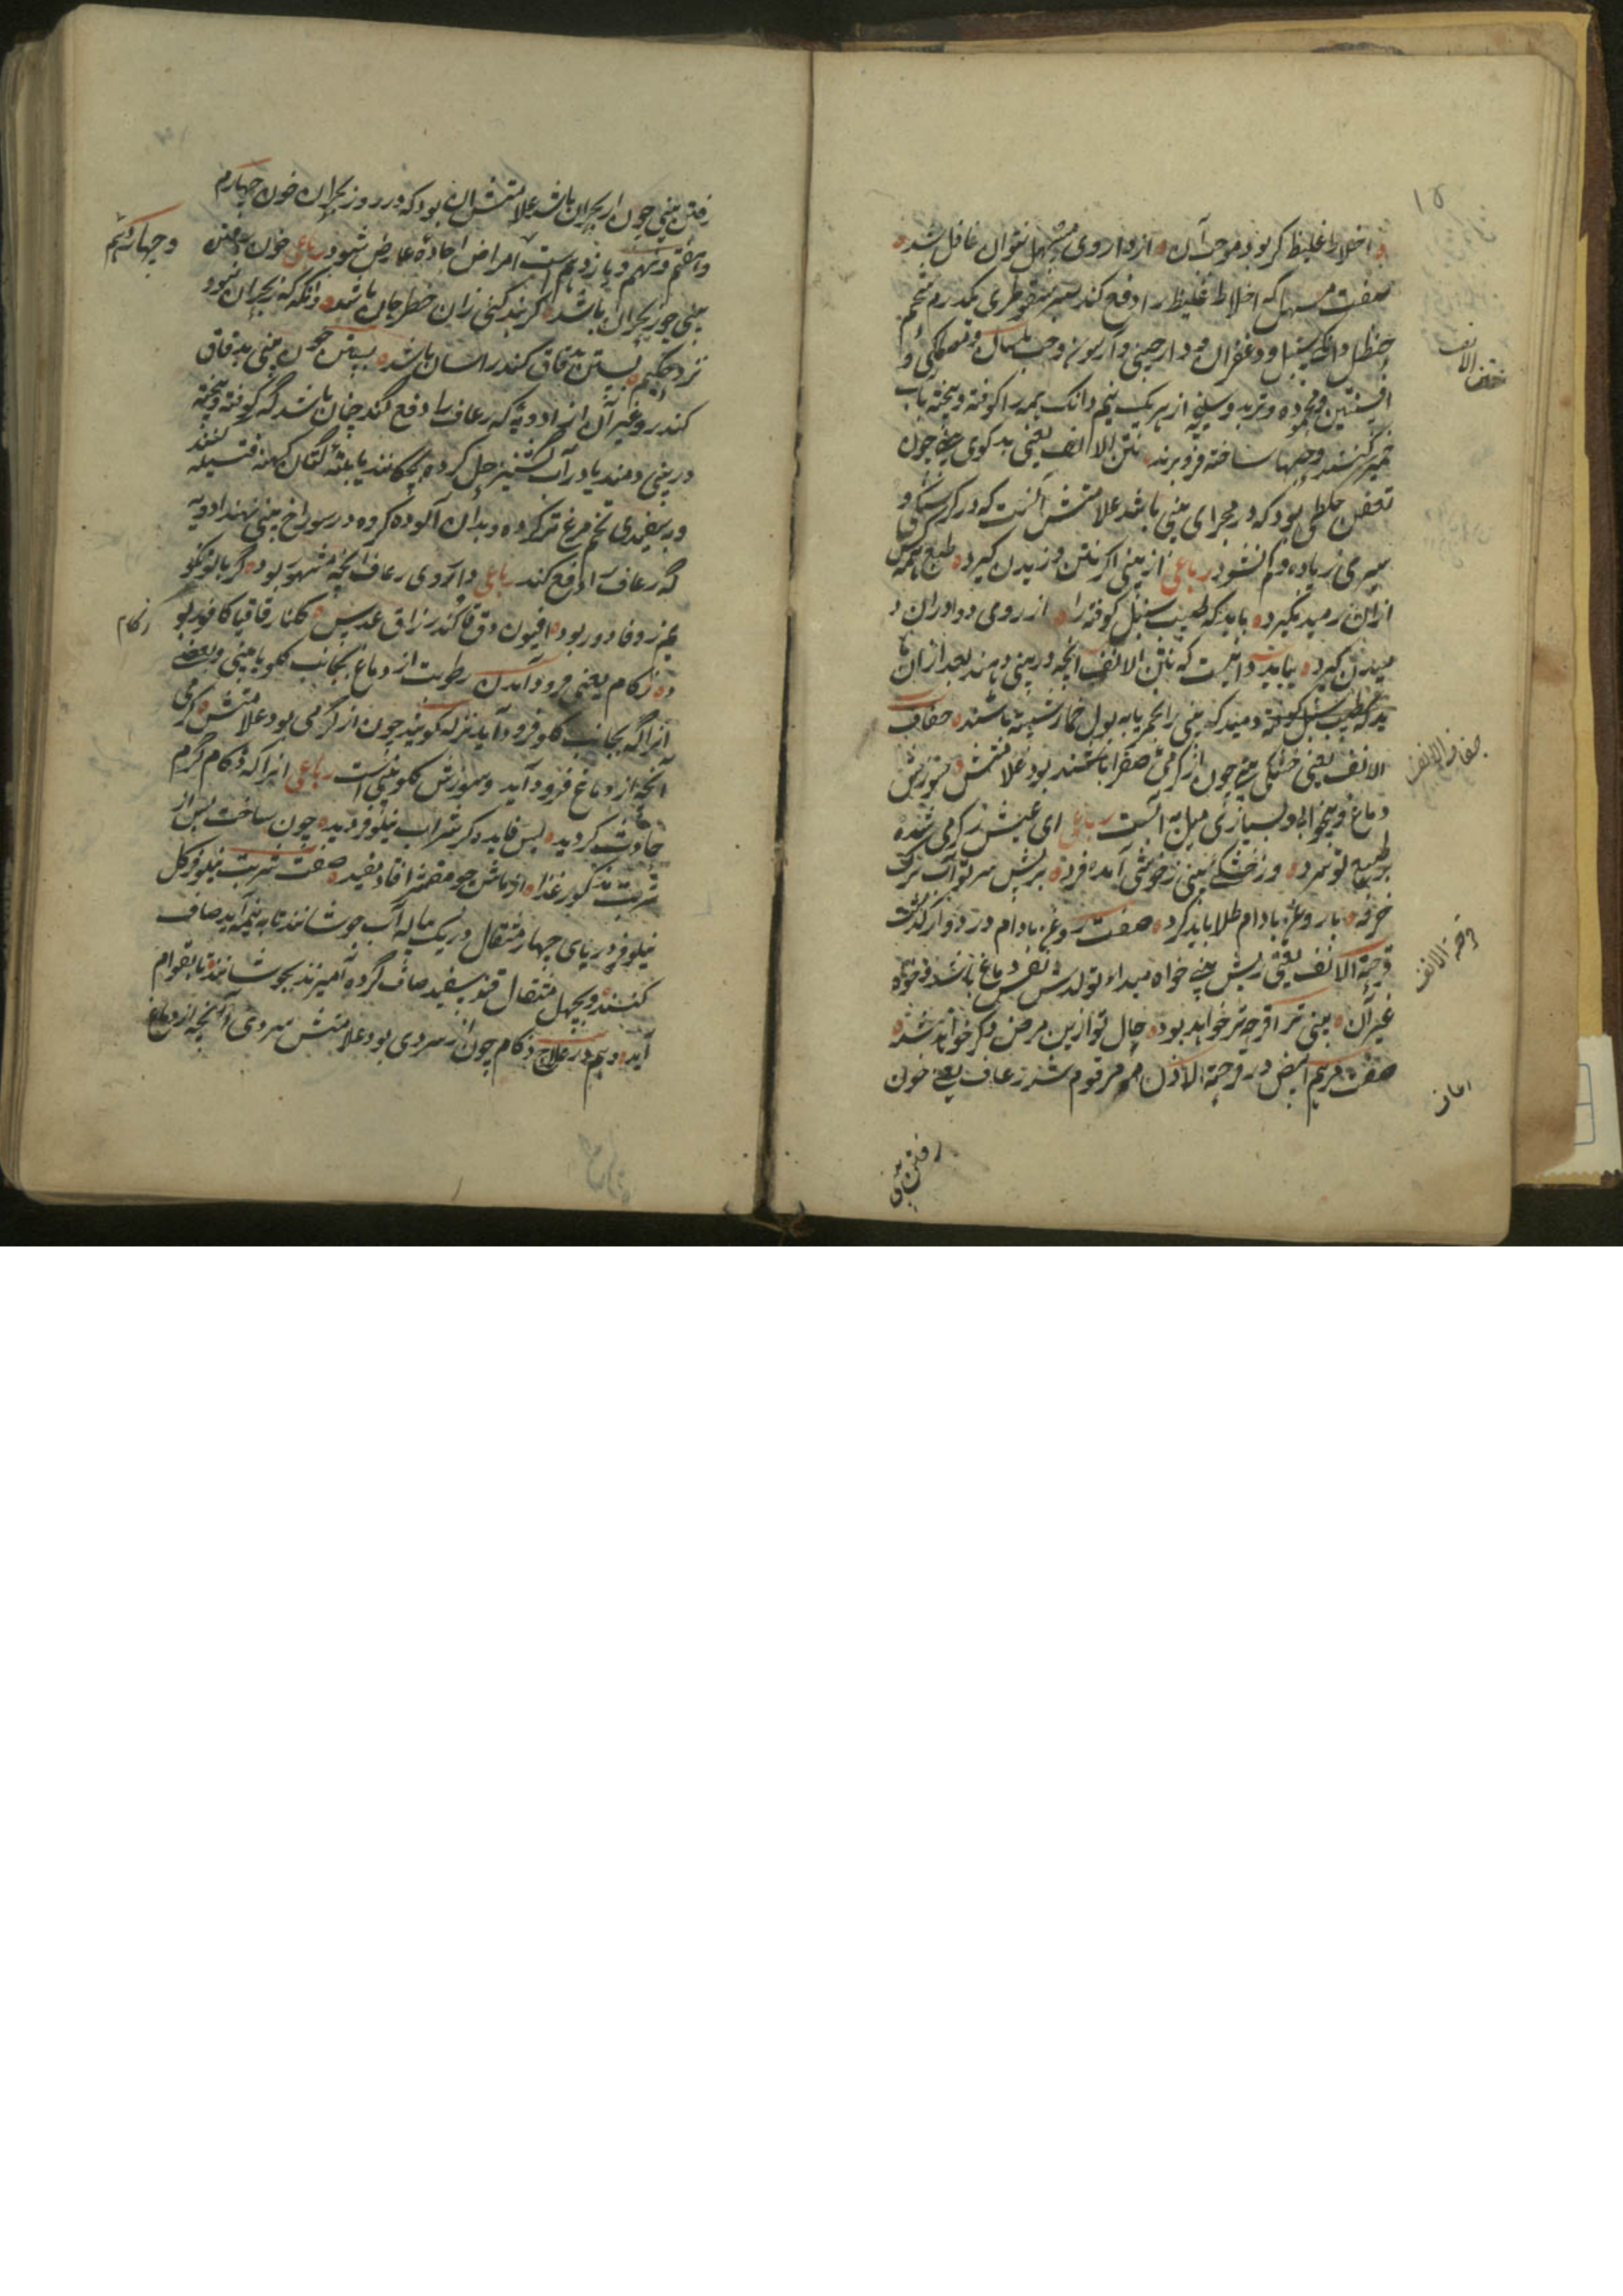 ۱۵
اخلاط غلیظ کر بود موجب آن از داروی مسهل نتوان غافل شد
صفت مسهل که اخلاط غلیظ را دفع کند صبر سقوطری یکدرم شحم
حنظل و انگ سنبل و زعفران و دارچینی و اسارون وحب بلسان و مصطکی و
افسنتین و محموده و تربد و سلیخه از هر یک نیم دانک همه را کوفته و بیخته بآب
خمیر کنند و حبها ساخته فرو برند نتن الانف یعنی بد بوی بینی چون
تعفن خلطی بود که در مجرای بینی باشد علامتش آنست که در گرسنگی و
سیری زیاده و کم نشود رباعی از بینی اگر نتن وزیدن گیرد طبع همه کس
ازان رمیدن گیرد باید که طبیب سنبل کوفته را از روی دوا دران د
میدن گیرد بباید دانست که نتن الانف آنچه در بینی دمند بعد ازان با
ید که طبیب سنبل کوفته دمید که بینی را بخمر یا به بول حمار شسته باشند جفاف
الانف یعنی خشکی بینی چون از گرمی صفرا باشد بود علامتش سوزش
دماغ و بیخوابی و بسیاری میل به آبست رباعی ای عیش ز گرمی شده
بر طبع تو سرد وز خشکی بینی ز خوشی آمده فرد بر پیش سر تو آب برک
خرفه با روغن بادام طلا باید کرد صفت روغن بادام در دوار گذشت
قرحة الانف یعنی ریش بینی خواه مبداء تولدش نفس دماغ باشد و خواه
غیر آن بینی ترا قرحه تر خواهد بود حال تو ازین مرض دگر خواهد شد
صفت مرهم ابیض در قرحة الاذن مرقوم شد رعاف یعنی خون
رفتن بینی
الانف
جفاف الانف
قرحة الانف
رفتن بینی چون از بحران باشد علامتش آن بود که در روز بحران خون چهارم
و هفتم و نهم و یازدهم است امراض حاده عارض شود رباعی خون رفتن
و چهاردهم
بینی چو ز بحران باشد گر بند کنی زان خطر جان باشد وانگه که ز بحران نبود
نزد حکیم بستن بدقاق کندر آسان باشد بستن خون بینی بدقاق
کندر و غیر آن از ادویه که رعاف را دفع کند چنان باشد که کوفته و بیخته
در بینی دمند یا در آب گشنیز حل کرده بچکانند یا بلته کتان کهنه فتیله کنند
و بسفیدی تخم مرغ تر کرده و بدان آلوده کرده در سوراخ بینی نهند ادویه
که رعاف را دفع کند رباعی داروی رعاف آنچه مشهور بود گر با تو نکو
یم ز وفا دور بود افیون و دقاق کندر زاق عدس گلنار قاقیا کافور بو
زکام
د زکام یعنی فرود آمدن رطوبت از دماغ بجانب گلو یا بینی و بعضی
آنرا که بجانب گلو فرود آید نزله گویند چون از گرمی بود علامتش گرمی
آنچه از دماغ فرود آید و سوزش گلو و بینی است رباعی آنرا که زکام گرم
حادث گردید بس فایده کز شراب نیلوفر دید چون ساخت پس از
شربت مذکور غذا از ماش جو مقشر افتاد مفید صفت شربت نیلوفر گل
نیلوفر دریای چهار مثقال در یک پیاله آب جوشانند تا به نیمه آید صاف
کنند و بچهل مثقال قند سفید صاف کرده آمیزند بجوشانند تا بقوام
آید دیم در علاج زکام چون از سردی بود علامتش سردی آنچه از دماغ